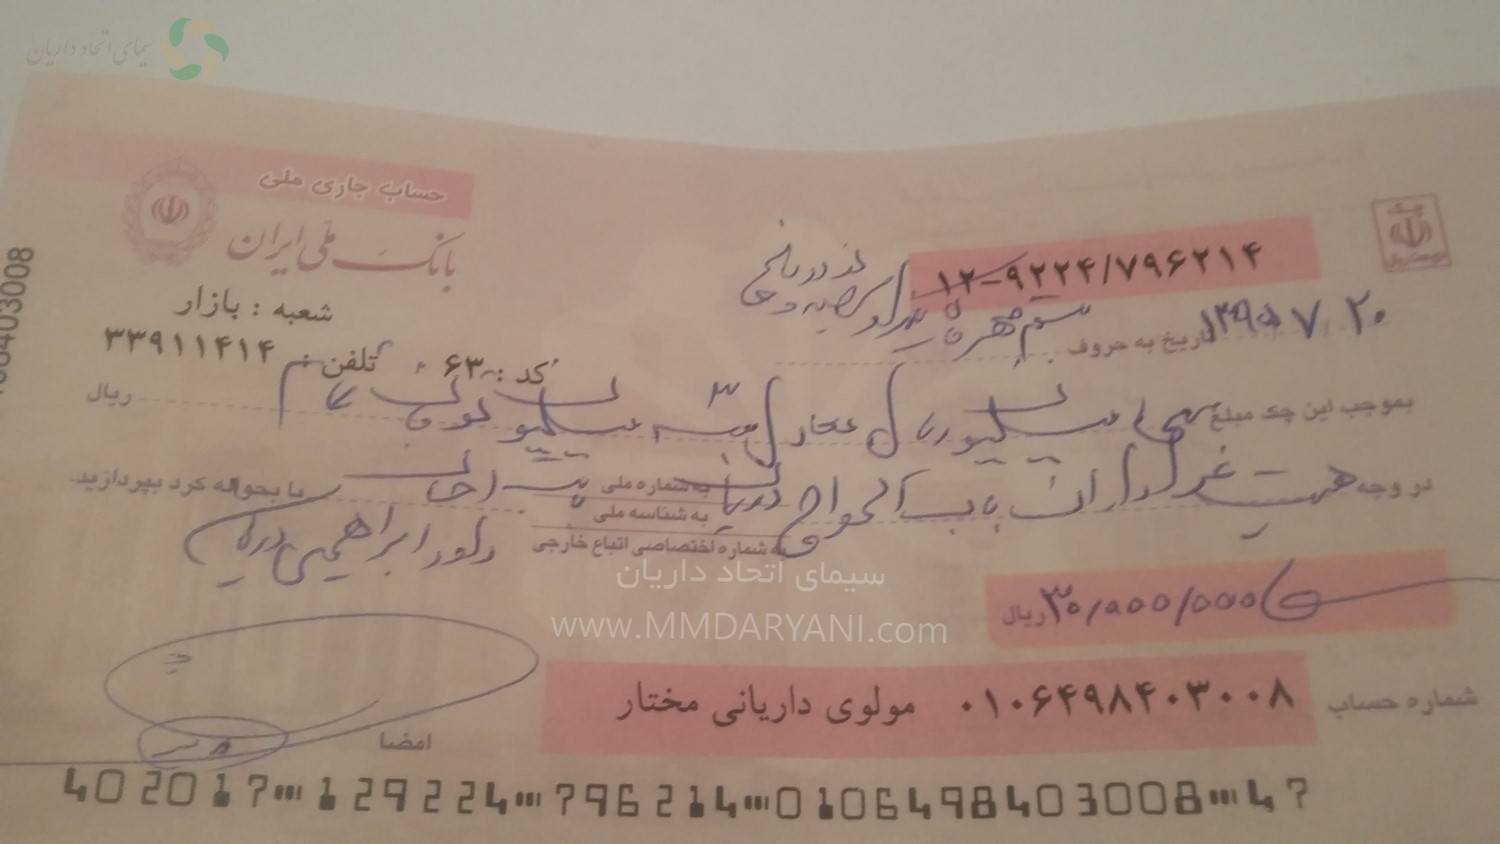 سیمای اتحاد داریان
حساب جاری ملی
بانک ملی ایران
شعبه : بازار
کد : ۶۳ تلفن : ۳۳۹۱۱۴۱۴
چک
۱۲-۹۲۲۴/۷۹۶۲۱۴
۱۳۹۵/۷/۲۰
تاریخ به حروف بیستم مهر ماه یکهزار و سیصد و نود و پنج
بموجب این چک مبلغ سی میلیون ریال معادل سه میلیون تومان تمام ریال
در وجه هیئت عزاداران باب الحوائج داریان به شماره ملی
به شناسه ملی
به شماره اختصاصی اتباع خارجی
یا بحواله کرد بپردازید.
ابراهیمی
۳۰/۰۰۰/۰۰۰ ریال
سیمای اتحاد داریان
www.MMDARYANI.com
شماره حساب ۰۱۰۶۴۹۸۴۰۳۰۰۸ مولوی داریانی مختار
امضا
402017 129224 796214 0106498403008 47